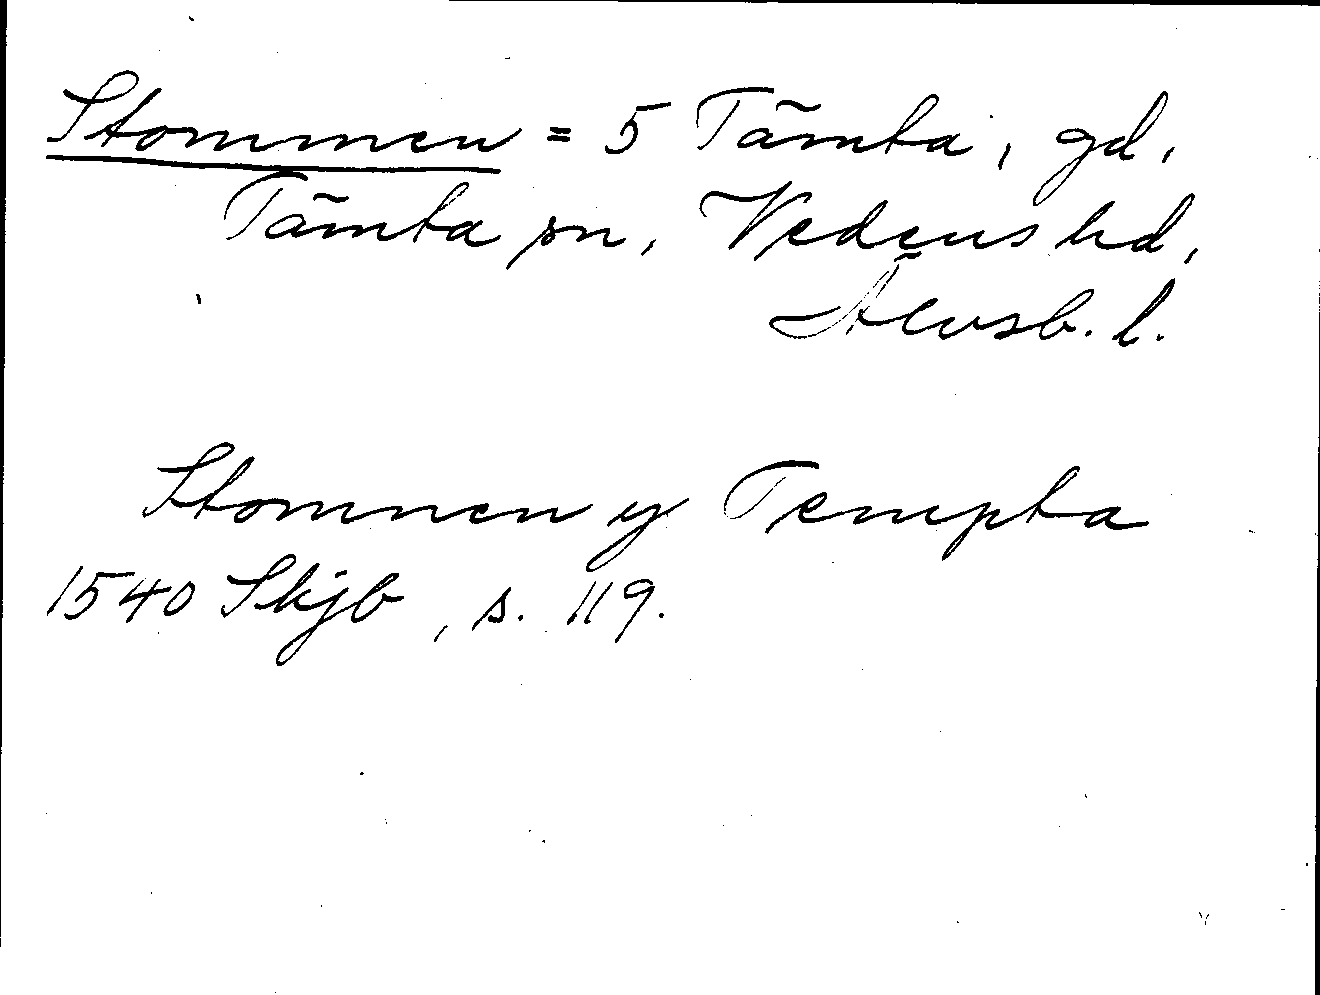 Stommen = 5 Tämta, gd,
Tämta sn, Vedens hd,
Älvsb. l.
Stomnen y Tempta
1540 Skjb, s. 119.